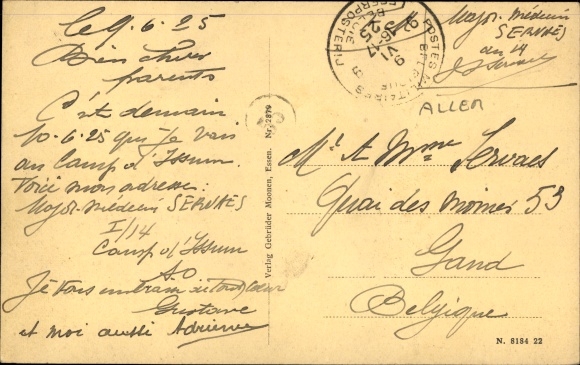 le 9.6.25
Bien chers
parents
C'est demain
10.6.25 que je vais
au Camp d'Issum.
Voici mon adresse:
Major-médecin SERVAES
I/14
Camp d'Issum
A.O
Je vous embrasse de tout cœur
Gustave
et moi aussi Adrienne
Verlag Gebrüder Moonen, Essen. Nr. 2879
POSTES MILITAIRES
BELGIQUE
LEGERPOSTERIJ
9 VI
1925
Major-médecin
SERVAES
au 14
ALLEM
Mr & Mme Servaes
Quai des moines 53
Gand
Belgique
N. 8184 22